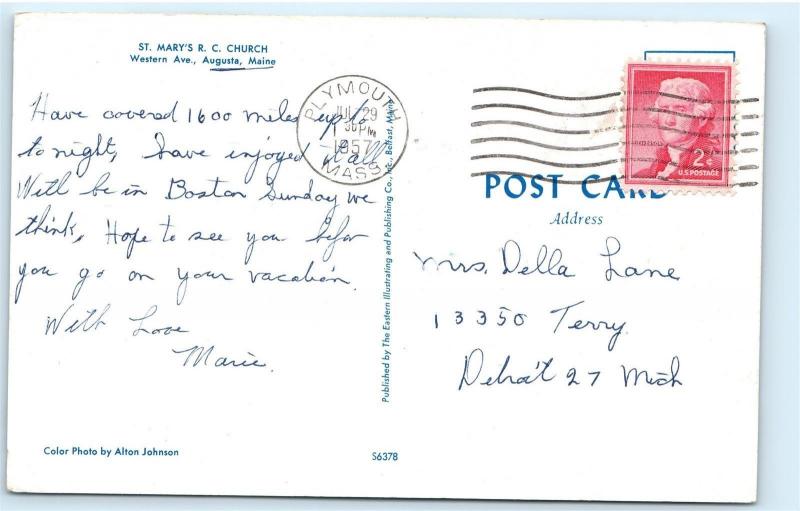 ST. MARY'S R. C. CHURCH
Western Ave., Augusta, Maine
Have covered 1600 miles up to
tonight, have enjoyed it all
Will be in Boston Sunday we
think. Hope to see you befor
you go on your vacation.
With Love
Marie.
Color Photo by Alton Johnson
S6378
Published by The Eastern Illustrating and Publishing Co., Inc., Belfast, Maine
PLYMOUTH
JUL 29
PM
1957
MASS.
2¢
U.S. POSTAGE
POST CARD
Address
Mrs. Della Lane
13350 Terry
Detroit 27 Mich